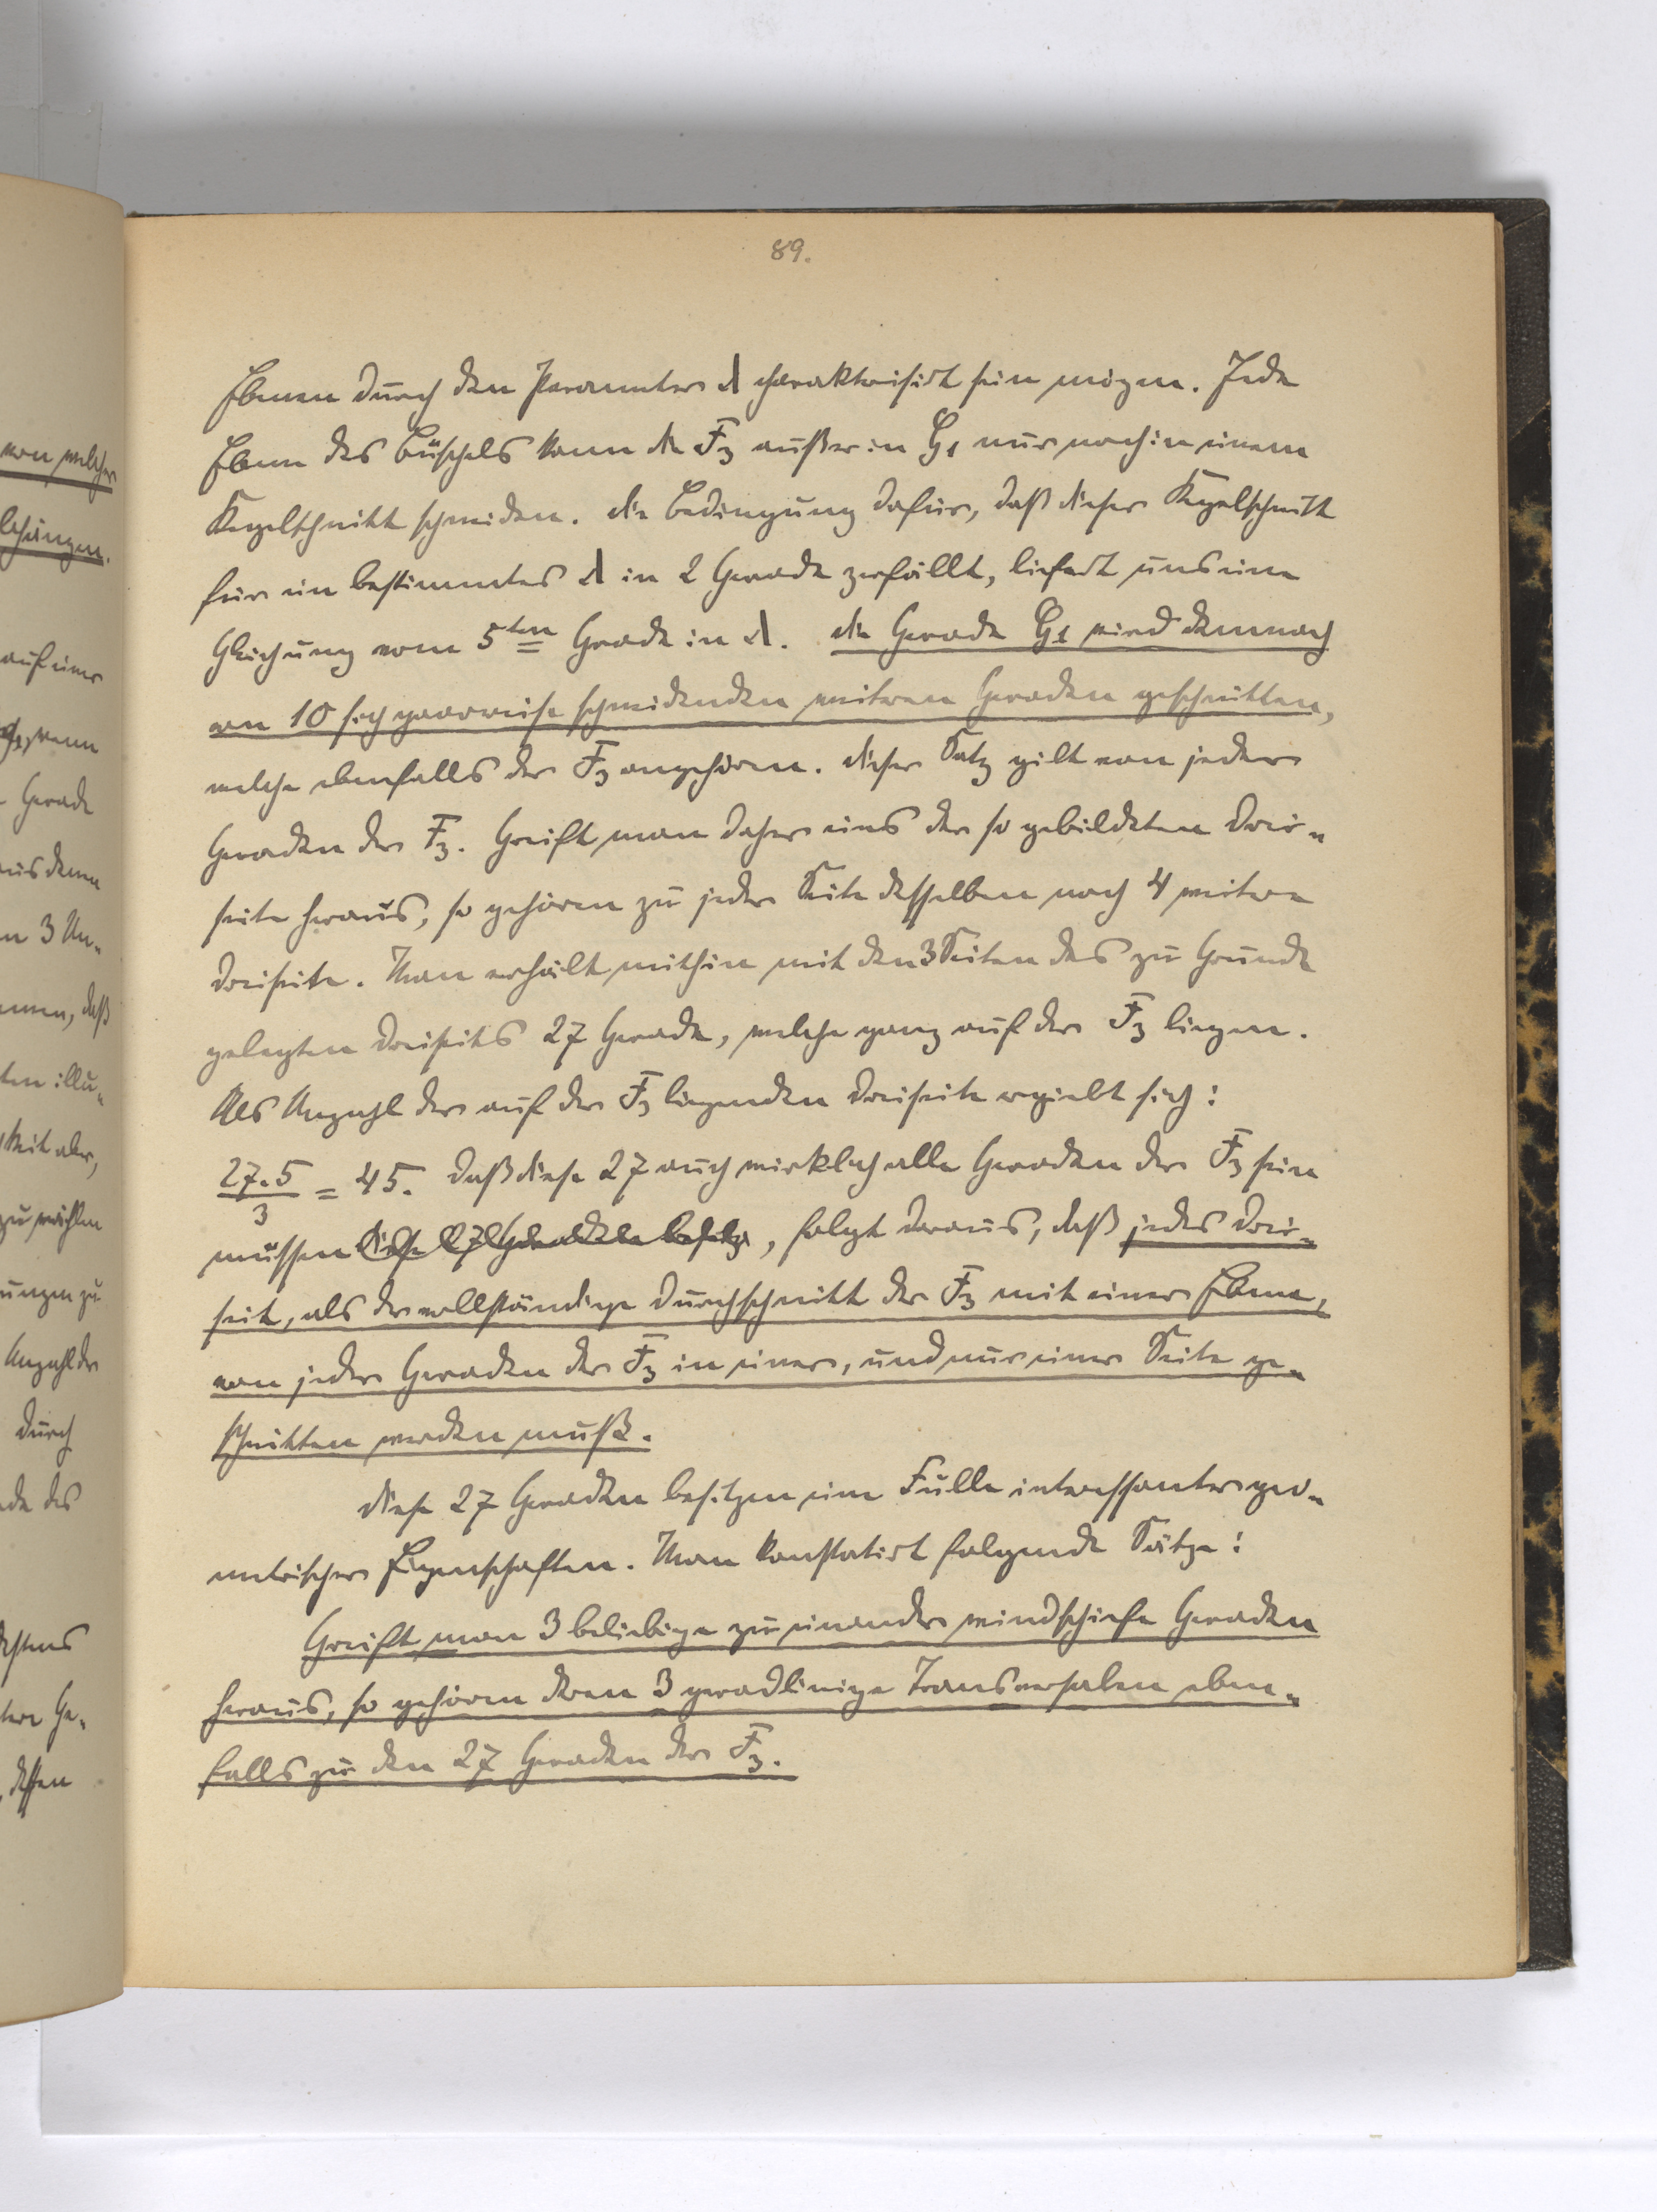 89.
Ebenen durch den Parameter λ charakterisirt sein mögen. Jede
Ebene des Büschels kann die F₃ außer in G₁ nur noch in einem
Kegelschnitt schneiden. Die Bedingung dafür, daß dieser Kegelschnitt
für ein bestimmtes λ in 2 Gerade zerfällt, liefert uns eine
Gleichung vom 5ten Grade in λ. Die Gerade G₁ wird demnach
von 10 sich paarweise schneidenden weiteren Geraden geschnitten,
welche ebenfalls der F₃ angehören. Dieser Satz gilt von jeder
Geraden der F₃. Greift man daher eins der so gebildeten Drei-
seite heraus, so gehören zu jeder Seite desselben noch 4 weitere
Dreiseite. Man erhält mithin mit den 3 Seiten des zu Grunde
gelegten Dreiseits 27 Gerade, welche ganz auf der F₃ liegen.
Als Anzahl der auf der F₃ liegenden Dreiseite ergiebt sich:
27·5/3 = 45. Daß diese 27 auch wirklich alle Geraden der F₃ sein
müssen, folgt daraus, daß jedes Drei-
seit, als der vollständige Durchschnitt der F₃ mit einer Ebene,
von jeder Geraden der F₃ in einer, und nur einer Seite ge-
schnitten werden muß.
Diese 27 Geraden besitzen eine Fülle interessanter geo-
metrischer Eigenschaften. Man konstatirt folgende Sätze:
Greift man 3 beliebige zu einander windschiefe Geraden
heraus, so gehören deren 3 geradlinige Transversalen eben-
falls zu den 27 Geraden der F₃.